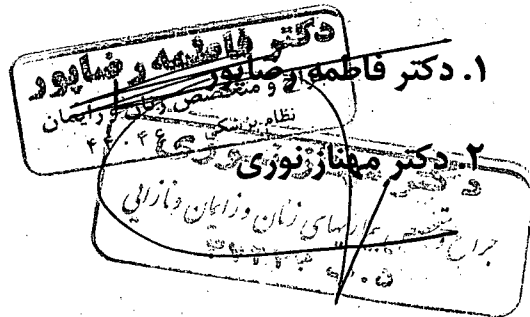 دکتر فاطمه رضاپور
۱. دکتر فاطمه رضاپور
جراح و متخصص زنان و زایمان
نظام پزشکی
۴۴۰۴۶
۲. دکتر مهناز نوری
دکتر مهناز نوری
جراح و متخصص بیماریهای زنان و زایمان و نازایی